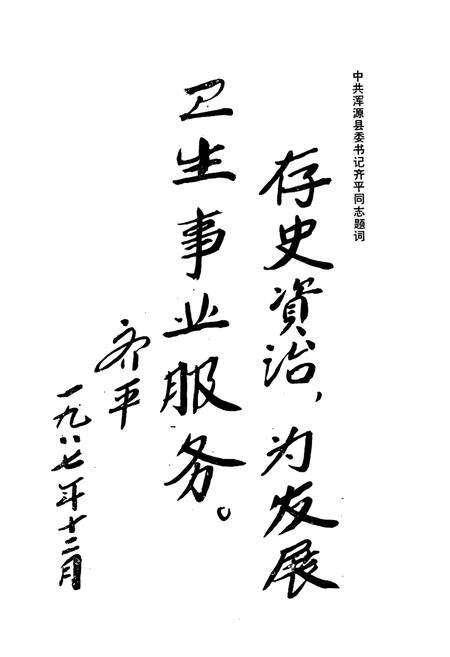 中共浑源县委书记齐平同志题词
存史資治，为发展
卫生事业服务。
齐平
一九八七年十二月